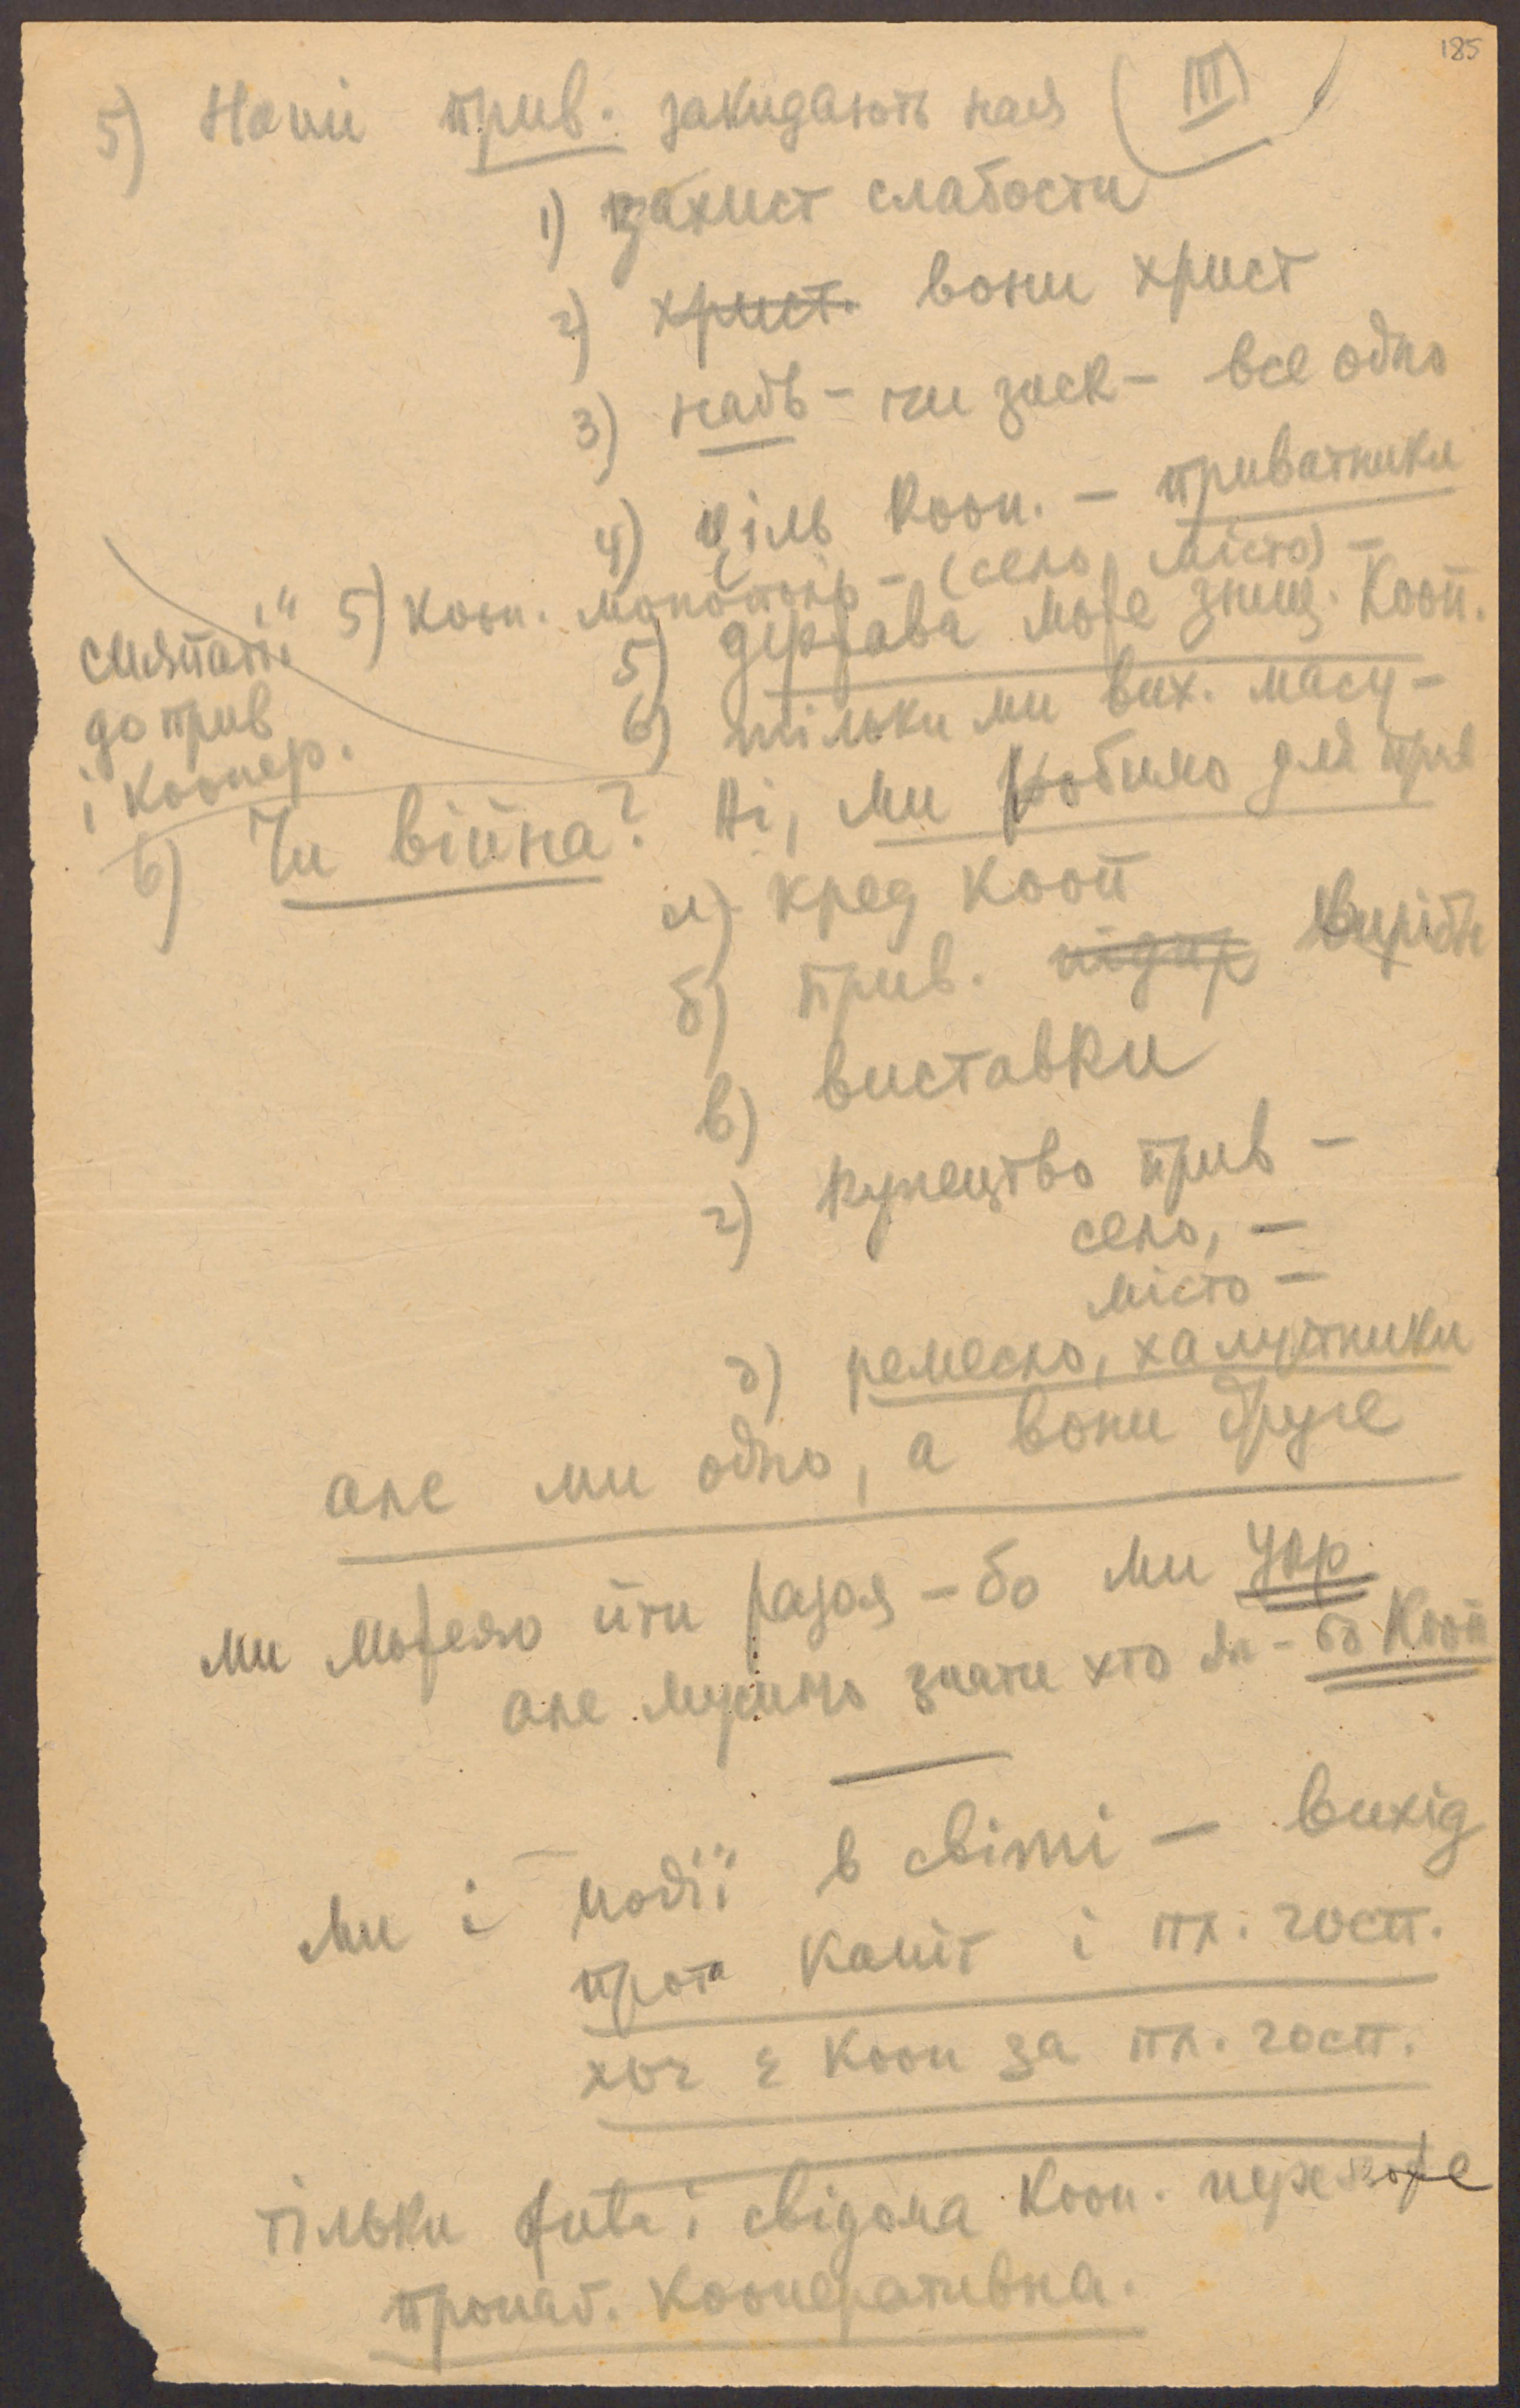 185
5) Наші прив. закидають нам (III)
1) захист слабости
2) христ. вони христ
3) надв - чи зиск - все одно
4) ціль кооп. - приватники
5) кооп. монополь - (село, місто) -
5) держава може знищ. Кооп.
симпатії
до прив
і коопер.
6) тільки ми вих. масу -
6) Чи війна? Ні, ми робимо для прив
а) кред кооп
б) прив. підпр виріб
в) виставки
г) купецтво прив -
село, -
місто -
д) ремесло, халупники
але ми одно, а вони друге
ми можемо йти разом - бо ми Укр.
але мусимо знати хто ми - бо Кооп
ми і події в світі - вихід
проти капіт і пл. госп.
хоч є кооп за пл. госп.
тільки жива і свідома Кооп. переможе
пропаг. кооперативна.